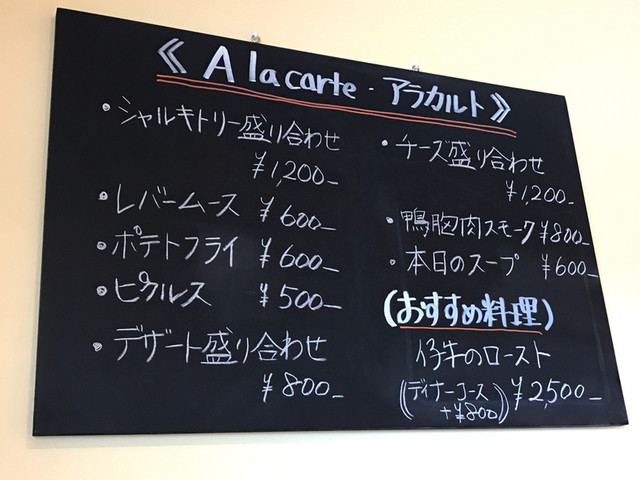 《 A la carte・アラカルト》
・シャルキトリー盛り合わせ
¥1,200-
・レバームース ¥600-
・ポテトフライ ¥600-
・ピクルス ¥500-
・デザート盛り合わせ
¥800-
・チーズ盛り合わせ
¥1,200-
・鴨胸肉スモーク ¥800-
・本日のスープ ¥600-
(おすすめ料理)
仔牛のロースト
¥2,500-
((ディナーコース
+¥800))